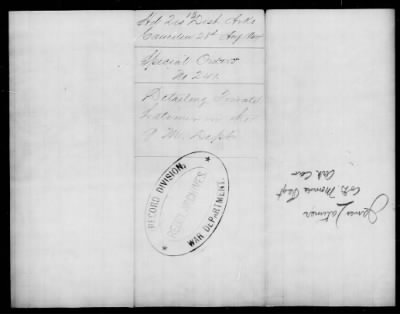 Camden 28th Aug
Special Orders
No 241.
Detailing Private
Latimer in
Q M. Dept.
RECORD DIVISION,
REBEL ARCHIVES,
WAR DEPARTMENT.
James Latimer
Co. Monroe Regt
Ark Cav